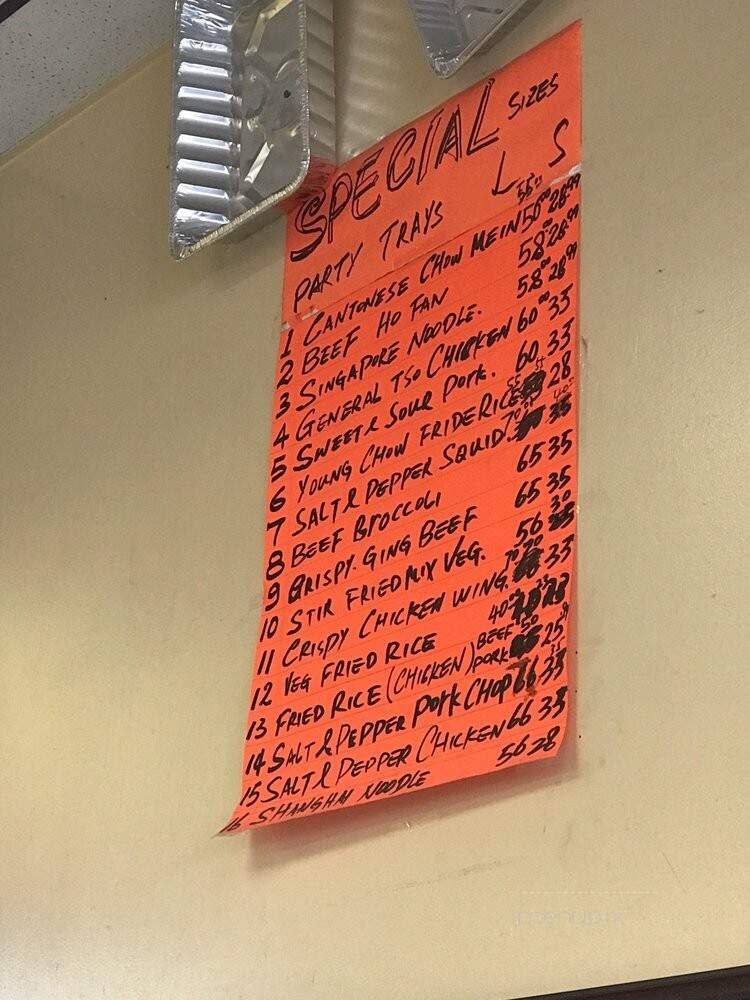 SPECIAL SIZES
PARTY TRAYS L S
1 CANTONESE CHOW MEIN 28.99
2 BEEF HO FAN 58.00 28.99
3 SINGAPORE NOODLE. 58.00 28.99
4 GENERAL TSO CHICKEN 60.00 33
5 SWEET & SOUR PORK. 60 33
6 YOUNG CHOW FRIDE RICE 28
7 SALT & PEPPER SQUID 35
8 BEEF BROCCOLI 65 35
9 CRISPY. GING BEEF 65 35
10 STIR FRIED MIX VEG. 56 30
11 CRISPY CHICKEN WING. 33
12 VEG FRIED RICE 40
13 FRIED RICE (CHICKEN) BEEF PORK 50 25
14 SALT & PEPPER PORK CHOP 66 33
15 SALT & PEPPER CHICKEN 66 33
16 SHANGHAI NOODLE 56 28
menupix